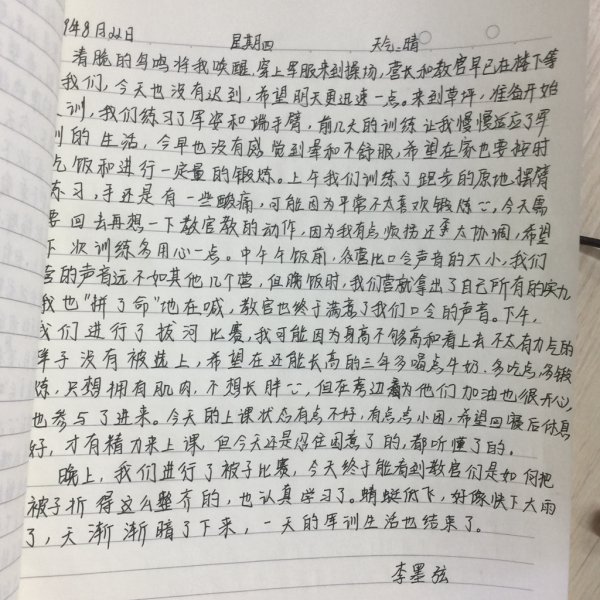 9年8月22日 星期四 天气:晴
清脆的鸟鸣将我唤醒,穿上军服来到操场,营长和教官早已在楼下等
我们,今天也没有迟到,希望明天更迅速一点。来到草坪,准备开始
训,我们练习了军姿和端手臂,前几天的训练让我慢慢适应了军
训的生活,今早也没有感觉到晕和不舒服,希望在家也要按时
吃饭和进行一定量的锻炼。上午我们训练了跑步的原地摆臂
练习,手还是有一些酸痛,可能因为平常不太喜欢锻炼,今天需
要回去再想一下教官教的动作,因为我有点烦捞还歪太协调,希望
下次训练多用心一点。中午午饭前,各营比口令声音的大小,我们
营的声音远不如其他几个营,但晚饭时,我们营就拿出了自己所有的实力
我也"拼了命"地在喊,教官也终于满意了我们口令的声音。下午,
我们进行了拔河比赛,我可能因为身高不够高和看上去不太有力气的
样子没有被选上,希望在还能长高的三年多喝点牛奶,多吃点,多锻
炼,只想拥有肌肉,不想长胖,但在旁边为他们加油也很开心,
也参与了进来。今天的上课状态有点不好,有点点小困,希望回寝后休息
好,才有精力来上课,但今天还是忍住困意了的,都听懂了的。
晚上,我们进行了被子比赛,今天终于能看到教官们是如何把
被子折得这么整齐的,也认真学习了。蜻蜓低飞,好像快下大雨
了,天渐渐暗了下来,一天的军训生活也结束了。
李墨弦